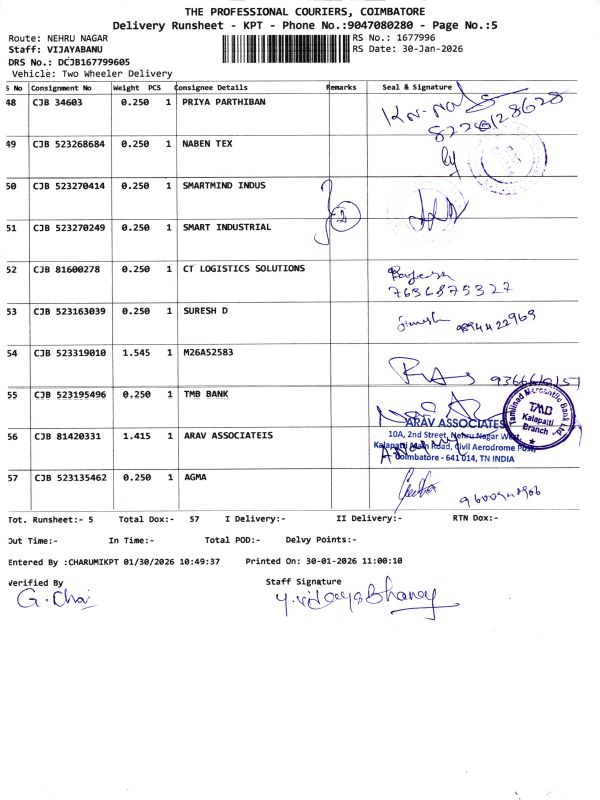 THE PROFESSIONAL COURIERS, COIMBATORE
Delivery Runsheet - KPT - Phone No.:9047080280 - Page No.:5
Route: NEHRU NAGAR
RS No.: 1677996
Staff: VIJAYABANU
RS Date: 30-Jan-2026
DRS No.: DCJB167799605
Vehicle: Two Wheeler Delivery
S No Consignment No Weight PCS Consignee Details Remarks Seal & Signature
48 CJB 34603 0.250 1 PRIYA PARTHIBAN
8220128628
49 CJB 523268684 0.250 1 NABEN TEX
50 CJB 523270414 0.250 1 SMARTMIND INDUS
2
51 CJB 523270249 0.250 1 SMART INDUSTRIAL
52 CJB 81600278 0.250 1 CT LOGISTICS SOLUTIONS
7636875327
53 CJB 523163039 0.250 1 SURESH D
9894422969
54 CJB 523319010 1.545 1 M26A52583
55 CJB 523195496 0.250 1 TMB BANK
Tamilnad Mercantile Bank Ltd.
TMB
Kalapatti
Branch
56 CJB 81420331 1.415 1 ARAV ASSOCIATEIS
ARAV ASSOCIATES
10A, 2nd Street, Nehru Nagar West,
Kalapatti Main Road, Civil Aerodrome Post,
Coimbatore - 641 014, TN INDIA
57 CJB 523135462 0.250 1 AGMA
Tot. Runsheet:- 5 Total Dox:- 57 I Delivery:- II Delivery:- RTN Dox:-
Out Time:- In Time:- Total POD:- Delvy Points:-
Entered By :CHARUMIKPT 01/30/2026 10:49:37 Printed On: 30-01-2026 11:00:10
Verified By Staff Signature
G. Chai Y. VijayaBhanu